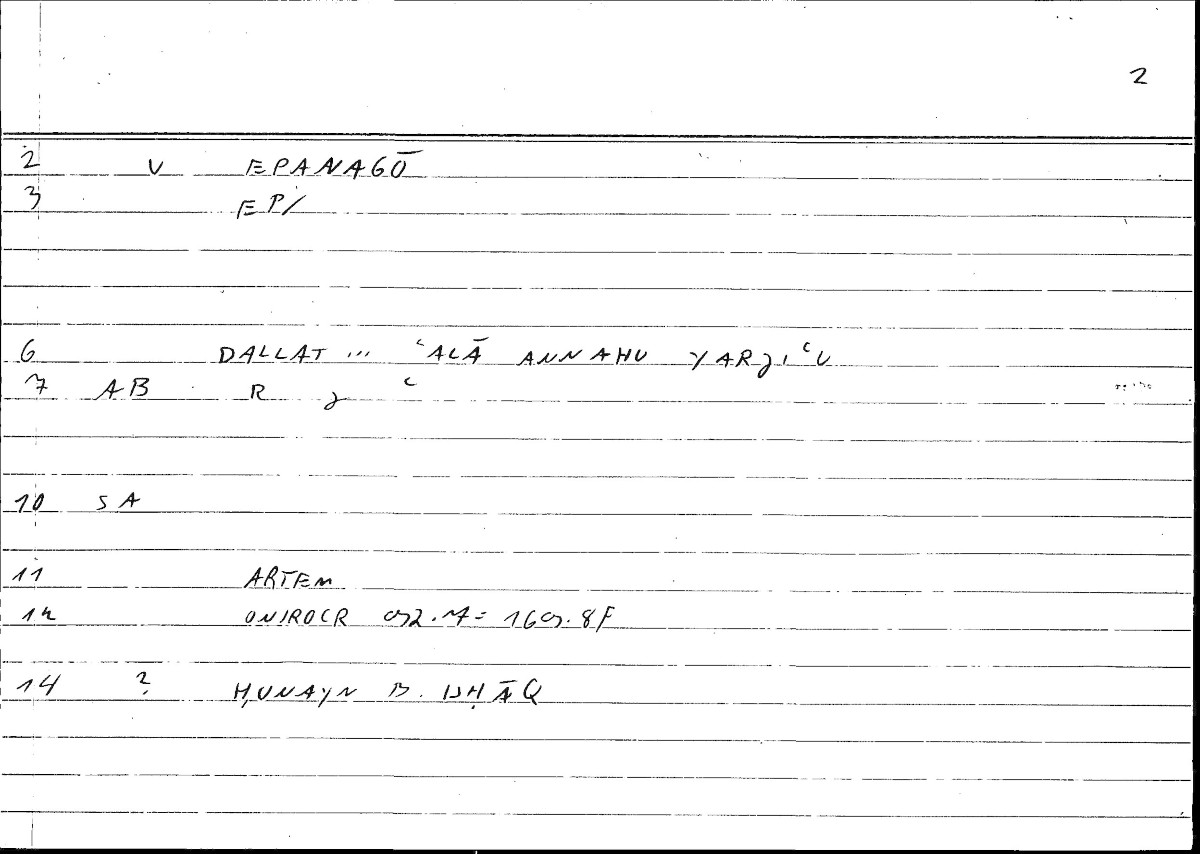 2
2 V EPANAGŌ
3 EP/
6 DALLAT ... ʿALĀ ANNAHU YARJIʿU
7 AB R J ʿ
10 SA
11 ARTEM
12 ONIROCR
14 ? ḤUNAYN B. ISḤĀQ